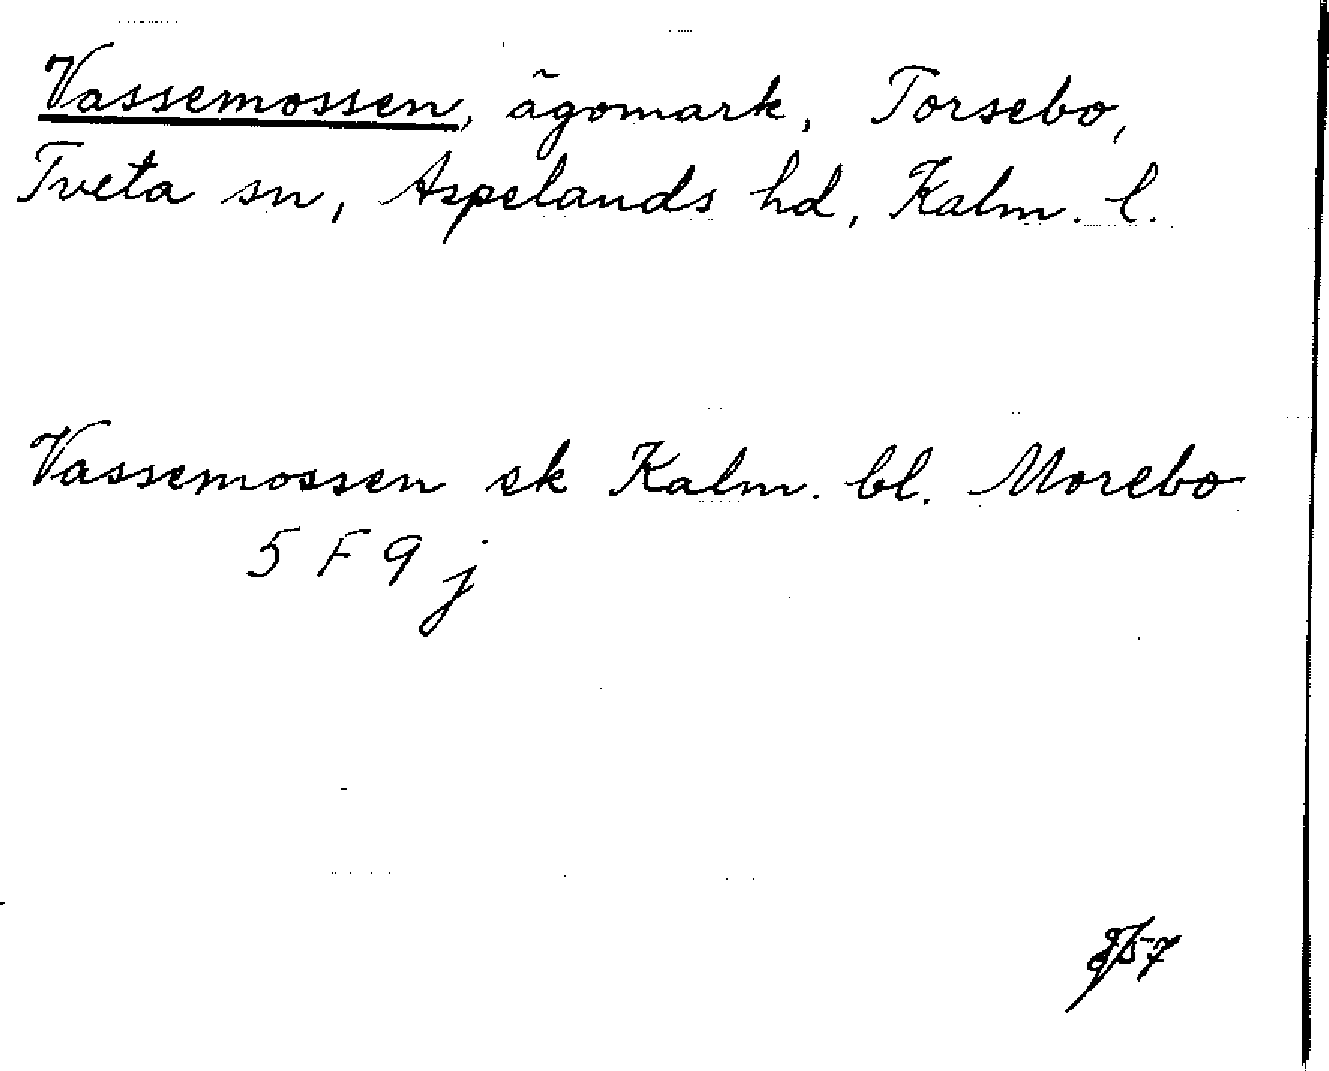 Vassemossen, ägomark, Torsebo,
Tveta sn, Aspelands hd, Kalm. l.
Vassemossen ek Kalm. bl. Morebo
5 F 9 j